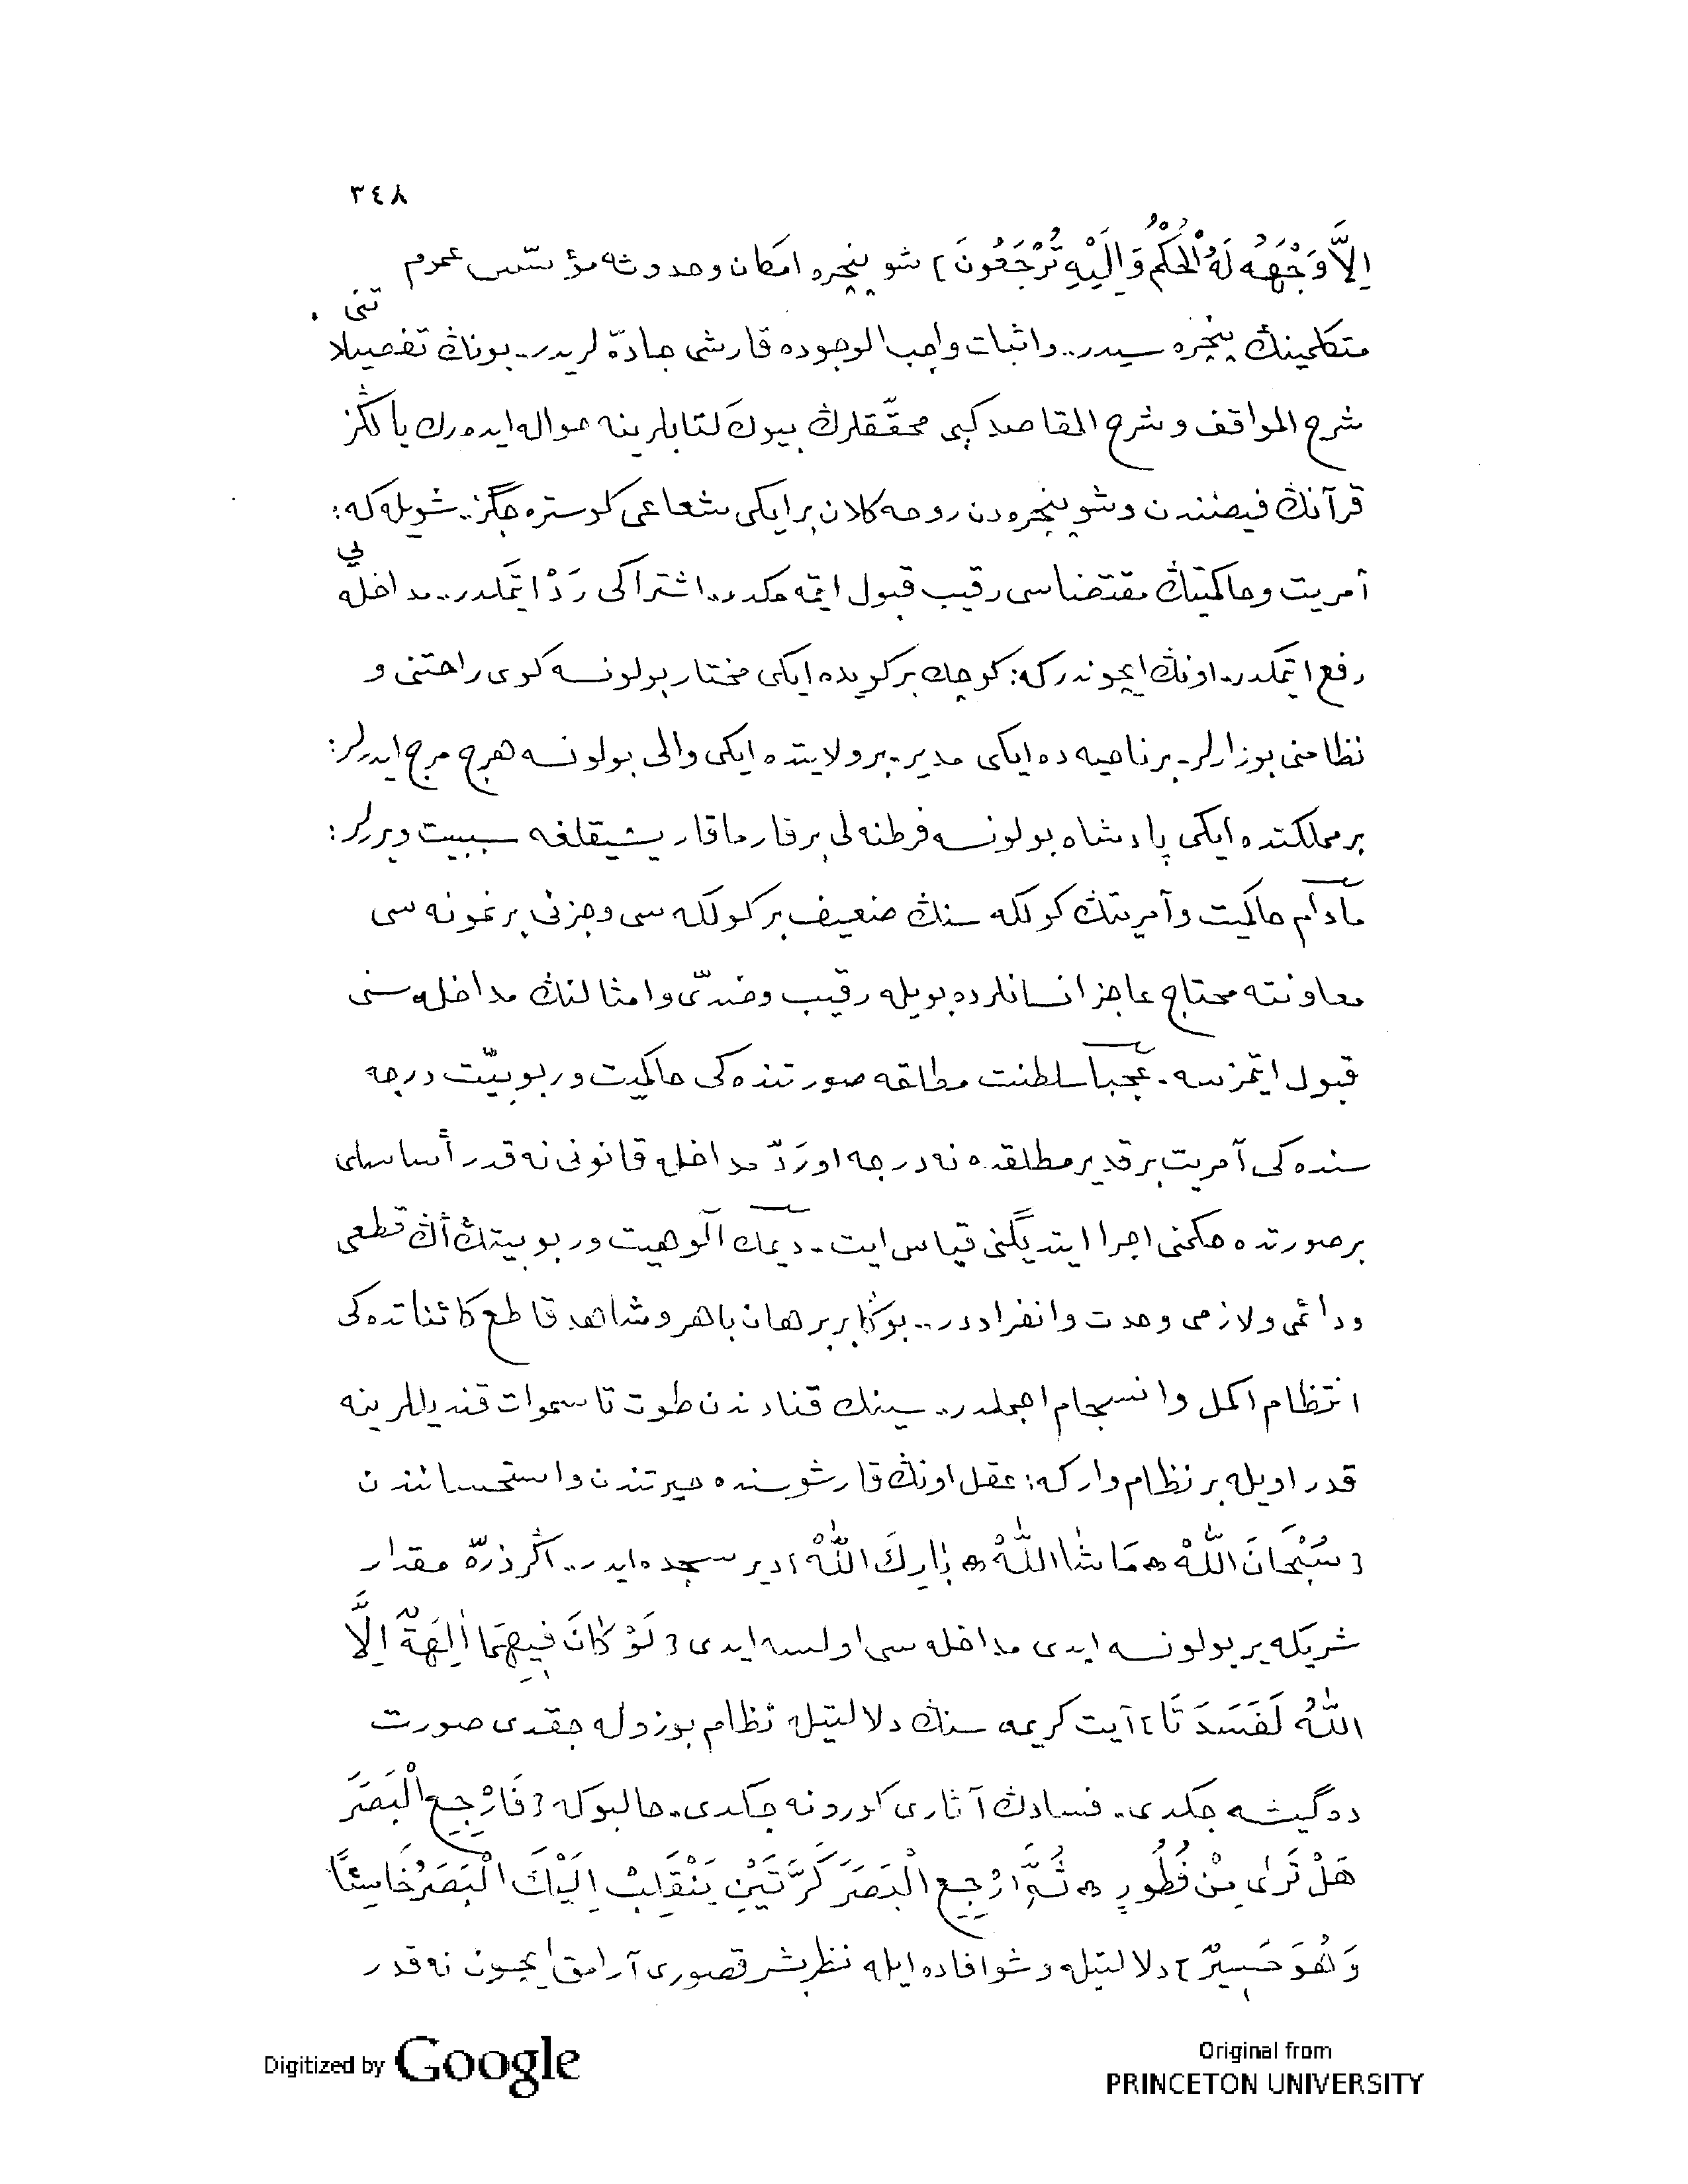 ٣٤٨
اِلَّا وَجْهَهُ لَهُ الْحُكْمُ وَاِلَيْهِ تُرْجَعُونَ} شو پنجره امكان وحدوثه مؤسّس عموم
متكلمينڭ پنجره سيدر.. واثبات واجب الوجوده قارشى جادّه لريدر.. بونڭ تفصيلاتنى
شرح المواقف وشرح المقاصد كبى محقّقلرڭ بيوك كتابلرينه حواله ايده رك يالڭز
قرآنڭ فيضندن وشو پنجره دن روحه كلان بر ايكى شعاعى كوستره جگز.. شويله كه:
آمريت وحاكميتڭ مقتضاسى رقيب قبول ايتمه مكدر.. اشتراكى رَدْ ايتمكدر.. مداخله يى
رفع ايتمكدر.. اونڭ ايچوندركه: كوچك بر كويده ايكى مختار بولونسه كوى راحتنى و
نظامنى بوزارلر.. بر ناحيه ده ايكى مدير.. بر ولايتده ايكى والى بولونسه هرج مرج ايدرلر:
بر مملكتده ايكى پادشاه بولونسه فرطنه لى بر قارماقاريشيقلغه سببيت ويررلر:
مادام حاكميت وآمريتڭ كولكه سنڭ ضعيف بر كولكه سى وجزئى بر نمونه سى
معاونته محتاج عاجز انسانلرده بويله رقيب وضدّى وامثالنڭ مداخله سنى
قبول ايتمزسه.. عجبا سلطنت مطلقه صورتنده كى حاكميت وربوبيّت درجه
سنده كى آمريت بر قدير مطلقده نه درجه او رَدّ مداخله قانونى نه قدر أساسلى
بر صورتده حكمنى اجرا ايتديگنى قياس ايت.. ديمك الوهيت وربوبيتڭ أڭ قطعى
ودائمى ولازمى وحدت وانفراددر.. بوڭا بر برهان باهر وشاهد قاطع كائناتده كى
انتظام اكمل وانسجام اجملدر.. سينك قنادندن طوت تا سموات قنديللرينه
قدر اويله بر نظام وار كه: عقل اونڭ قارشوسنده حيرتندن واستحساندن
{سُبْحَانَ اللّٰهْ ۞ مَا شَا اللّٰهْ ۞ بَارَكَ اللّٰهْ} دير سجده ايدر.. اگر ذرّه مقدار
شريكه ير بولونسه ايدى مداخله سى اولسه ايدى {لَوْ كَانَ فِيهِمَا اٰلِهَةٌ اِلَّا
اللّٰهُ لَفَسَدَتَا} آيت كريمه سنڭ دلالتيله نظام بوزوله جقدى صورت
دگيشه جكدى.. فسادڭ آثارى كورونه جكدى.. حالبوكه {فَارْجِعِ الْبَصَرَ
هَلْ تَرٰى مِنْ فُطُورٍ ۞ ثُمَّ ارْجِعِ الْبَصَرَ كَرَّتَيْنِ يَنْقَلِبْ اِلَيْكَ الْبَصَرُ خَاسِئًا
وَهُوَ حَسِيرٌ} دلالتيله وشو افاده ايله نظر بشر قصورى آرامق ايچون نه قدر
Digitized by Google
Original from
PRINCETON UNIVERSITY